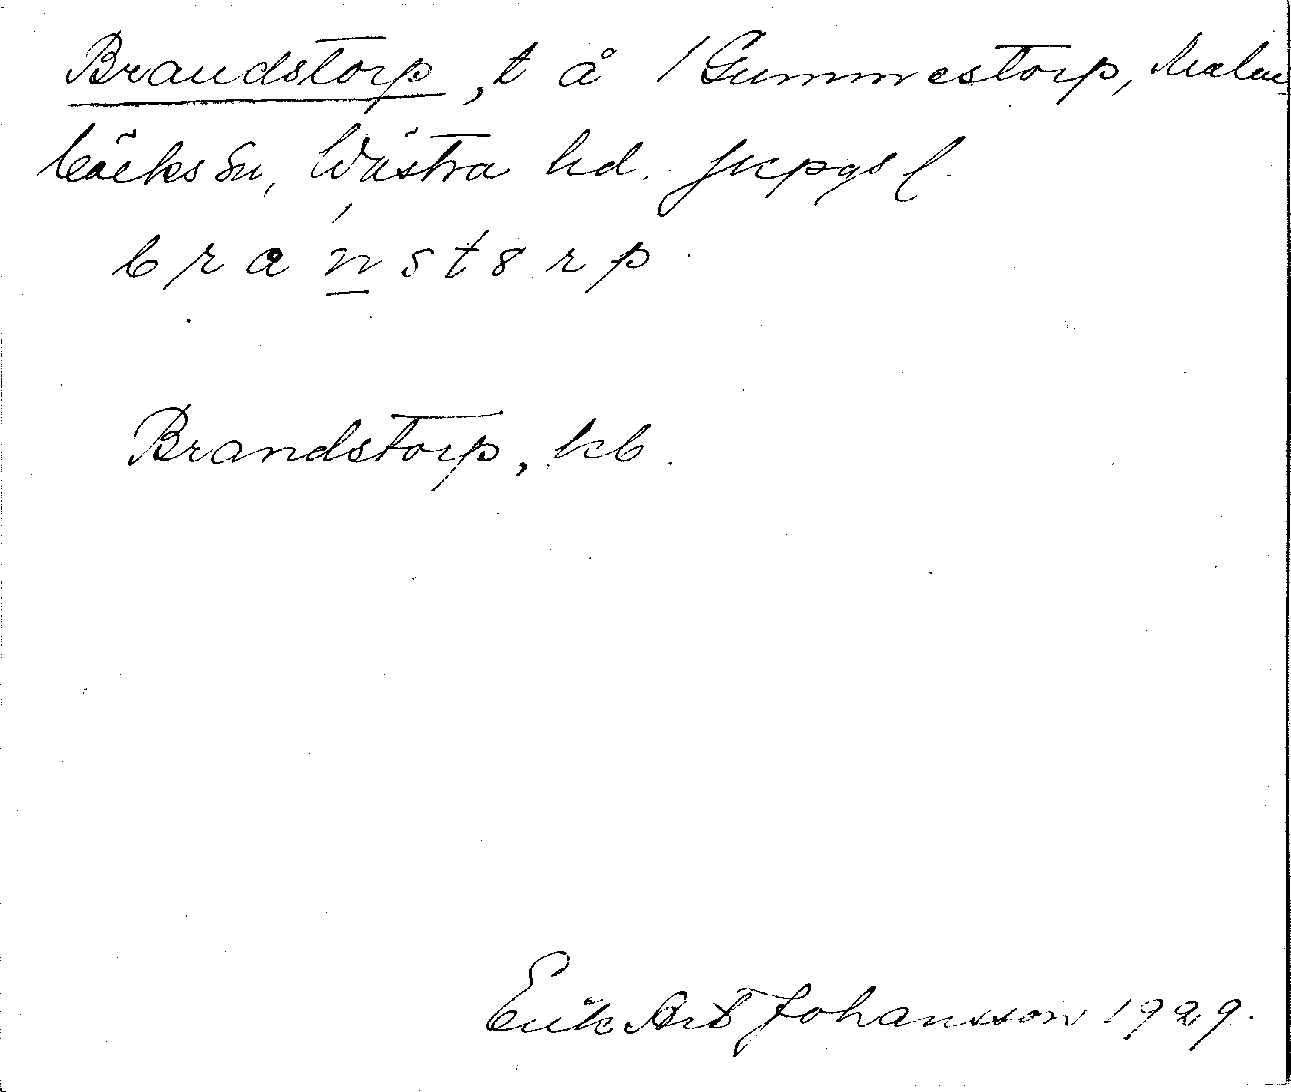 Brandstorp, t å 1 Gummestorp, Malm-
bäcks sn, Wästra hd. Jkpgs l.
bran̲storp
Brandstorp, kb.
Erik Art Johansson 1929.